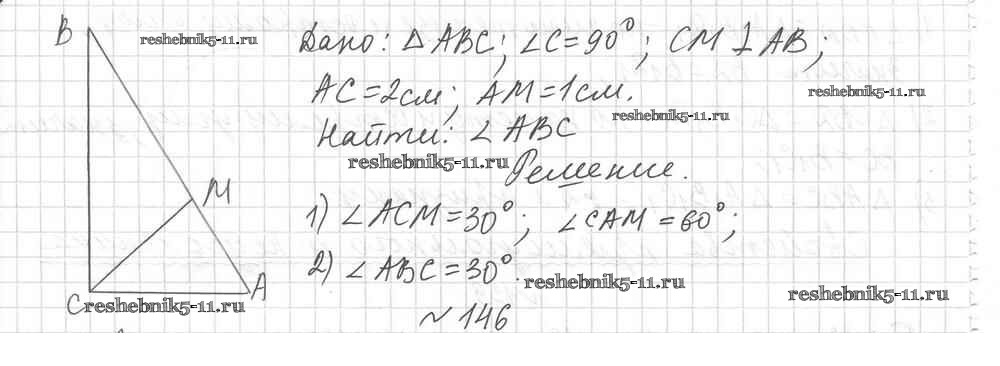 B
reshebnik5-11.ru
Дано: △ ABC; ∠C=90°; CM ⊥ AB;
AC=2см; AM=1см.
reshebnik5-11.ru
reshebnik5-11.ru
Найти: ∠ ABC
reshebnik5-11.ru
Решение.
M
1) ∠ ACM=30°; ∠CAM=60°;
2) ∠ ABC=30°.
reshebnik5-11.ru
C
A
reshebnik5-11.ru
reshebnik5-11.ru
~ 146